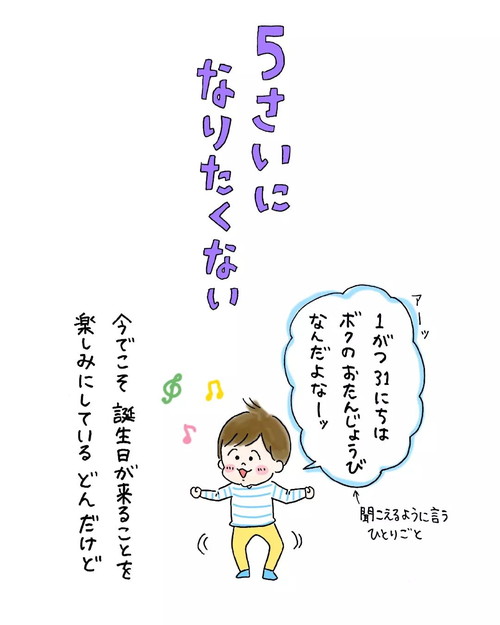 5さいに
なりたくない
アーッ
1がつ 31にちは
ボクの おたんじょうび
なんだよなーッ
聞こえるように言う
ひとりごと
今でこそ 誕生日が来ることを
楽しみにしている どんだけど